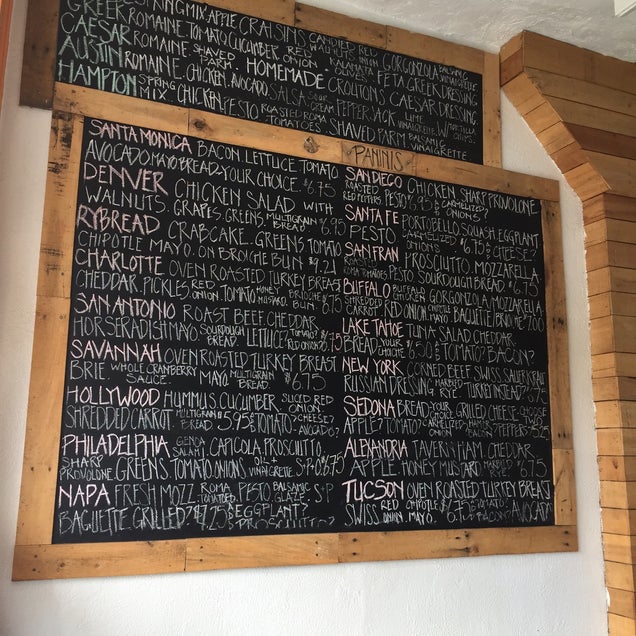 MIX APPLE CRAISINS CANDIED WALNUTS RED ONION GORGONZOLA BALSAMIC
GREEK ROMAINE TOMATO CUCUMBER RED ONION KALAMATA OLIVES FETA GREEK DRESSING
CAESAR ROMAINE SHAVED PARM. HOMEMADE CROUTONS CAESAR DRESSING
AUSTIN ROMAINE. CHICKEN. AVOCADO. SALSA. SOUR CREAM PEPPER JACK LIME VINAIGRETTE TORTILLA CHIPS.
HAMPTON SPRING MIX. CHICKEN. PESTO ROASTED ROMA TOMATOES. SHAVED PARM. BALSAMIC VINAIGRETTE
SANTA MONICA BACON LETTUCE TOMATO
AVOCADO. MAYO BREAD-YOUR CHOICE. $6.75
DENVER CHICKEN SALAD WITH
WALNUTS. GRAPES. GREENS. MULTIGRAIN BREAD $6.75
RYBREAD CRABCAKE. GREENS TOMATO
CHIPOTLE MAYO. ON BROICHE BUN $9.21
CHARLOTTE OVEN ROASTED TURKEY BREAST
CHEDDAR. PICKLES. RED ONION. TOMATO HONEY MUSTARD BRIOCHE BUN $6.75
SAN ANTONIO ROAST BEEF CHEDDAR
HORSERADISH MAYO. SOURDOUGH BREAD. LETTUCE TOMATO? RED ONION?
SAVANNAH OVEN ROASTED TURKEY BREAST
BRIE. WHOLE CRANBERRY SAUCE. MAYO. MULTIGRAIN BREAD $6.75
HOLLYWOOD HUMMUS. CUCUMBER. SLICED RED ONION.
SHREDDED CARROT. MULTIGRAIN BREAD 5.95 TOMATO? CHEESE? AVOCADO?
PHILADELPHIA GENOA SALAMI. CAPICOLA. PROSCIUTTO
SHARP PROVOLONE. GREENS. TOMATO. ONIONS. OIL + VINAIGRETTE S+P.
NAPA FRESH MOZZ. ROMA TOMATOES. PESTO. BALSAMIC GLAZE. S+P
BAGUETTE. GRILLED? $7.25 EGGPLANT? PROSCIUTTO?
PANINIS
SAN DIEGO CHICKEN SHARP PROVOLONE
ROASTED RED PEPPERS PESTO CARMELIZED? ONIONS
SANTA FE PORTOBELLO. SQUASH. EGGPLANT.
PESTO CARMELIZED ONIONS $6.75 CHEESE?
SAN FRAN PROSCIUTTO. MOZZARELLA.
ROASTED ROMA TOMATOES. PESTO SOURDOUGH BREAD $6.75
BUFFALO BUFFALO CHICKEN GORGONZOLA. MOZZARELLA.
SHREDDED CARROT RED ONION CHIPOTLE MAYO BAGUETTE/BRIOCHE 7.00
LAKE TAHOE TUNA SALAD. CHEDDAR.
BREAD YOUR CHOICHE 6.50 TOMATO? BACON?
NEW YORK CORNED BEEF. SWISS. SAUERKRAUT
RUSSIAN DRESSING MARBLED RYE TURKEY INSTEAD? $6.75
SEDONA BREAD YOUR CHOICE GRILLED CHEESE CHOOSE
APPLE? TOMATO? CARMELIZED? ONION HAM? BACON? PEPPERS?
ALEXANDRIA TAVERN HAM CHEDDAR.
APPLE. HONEY MUSTARD MARBLE RYE $6.75
TUCSON OVEN ROASTED TURKEY BREAST
SWISS. RED ONION. CHIPOTLE MAYO. TOMATO? AVOCADO?